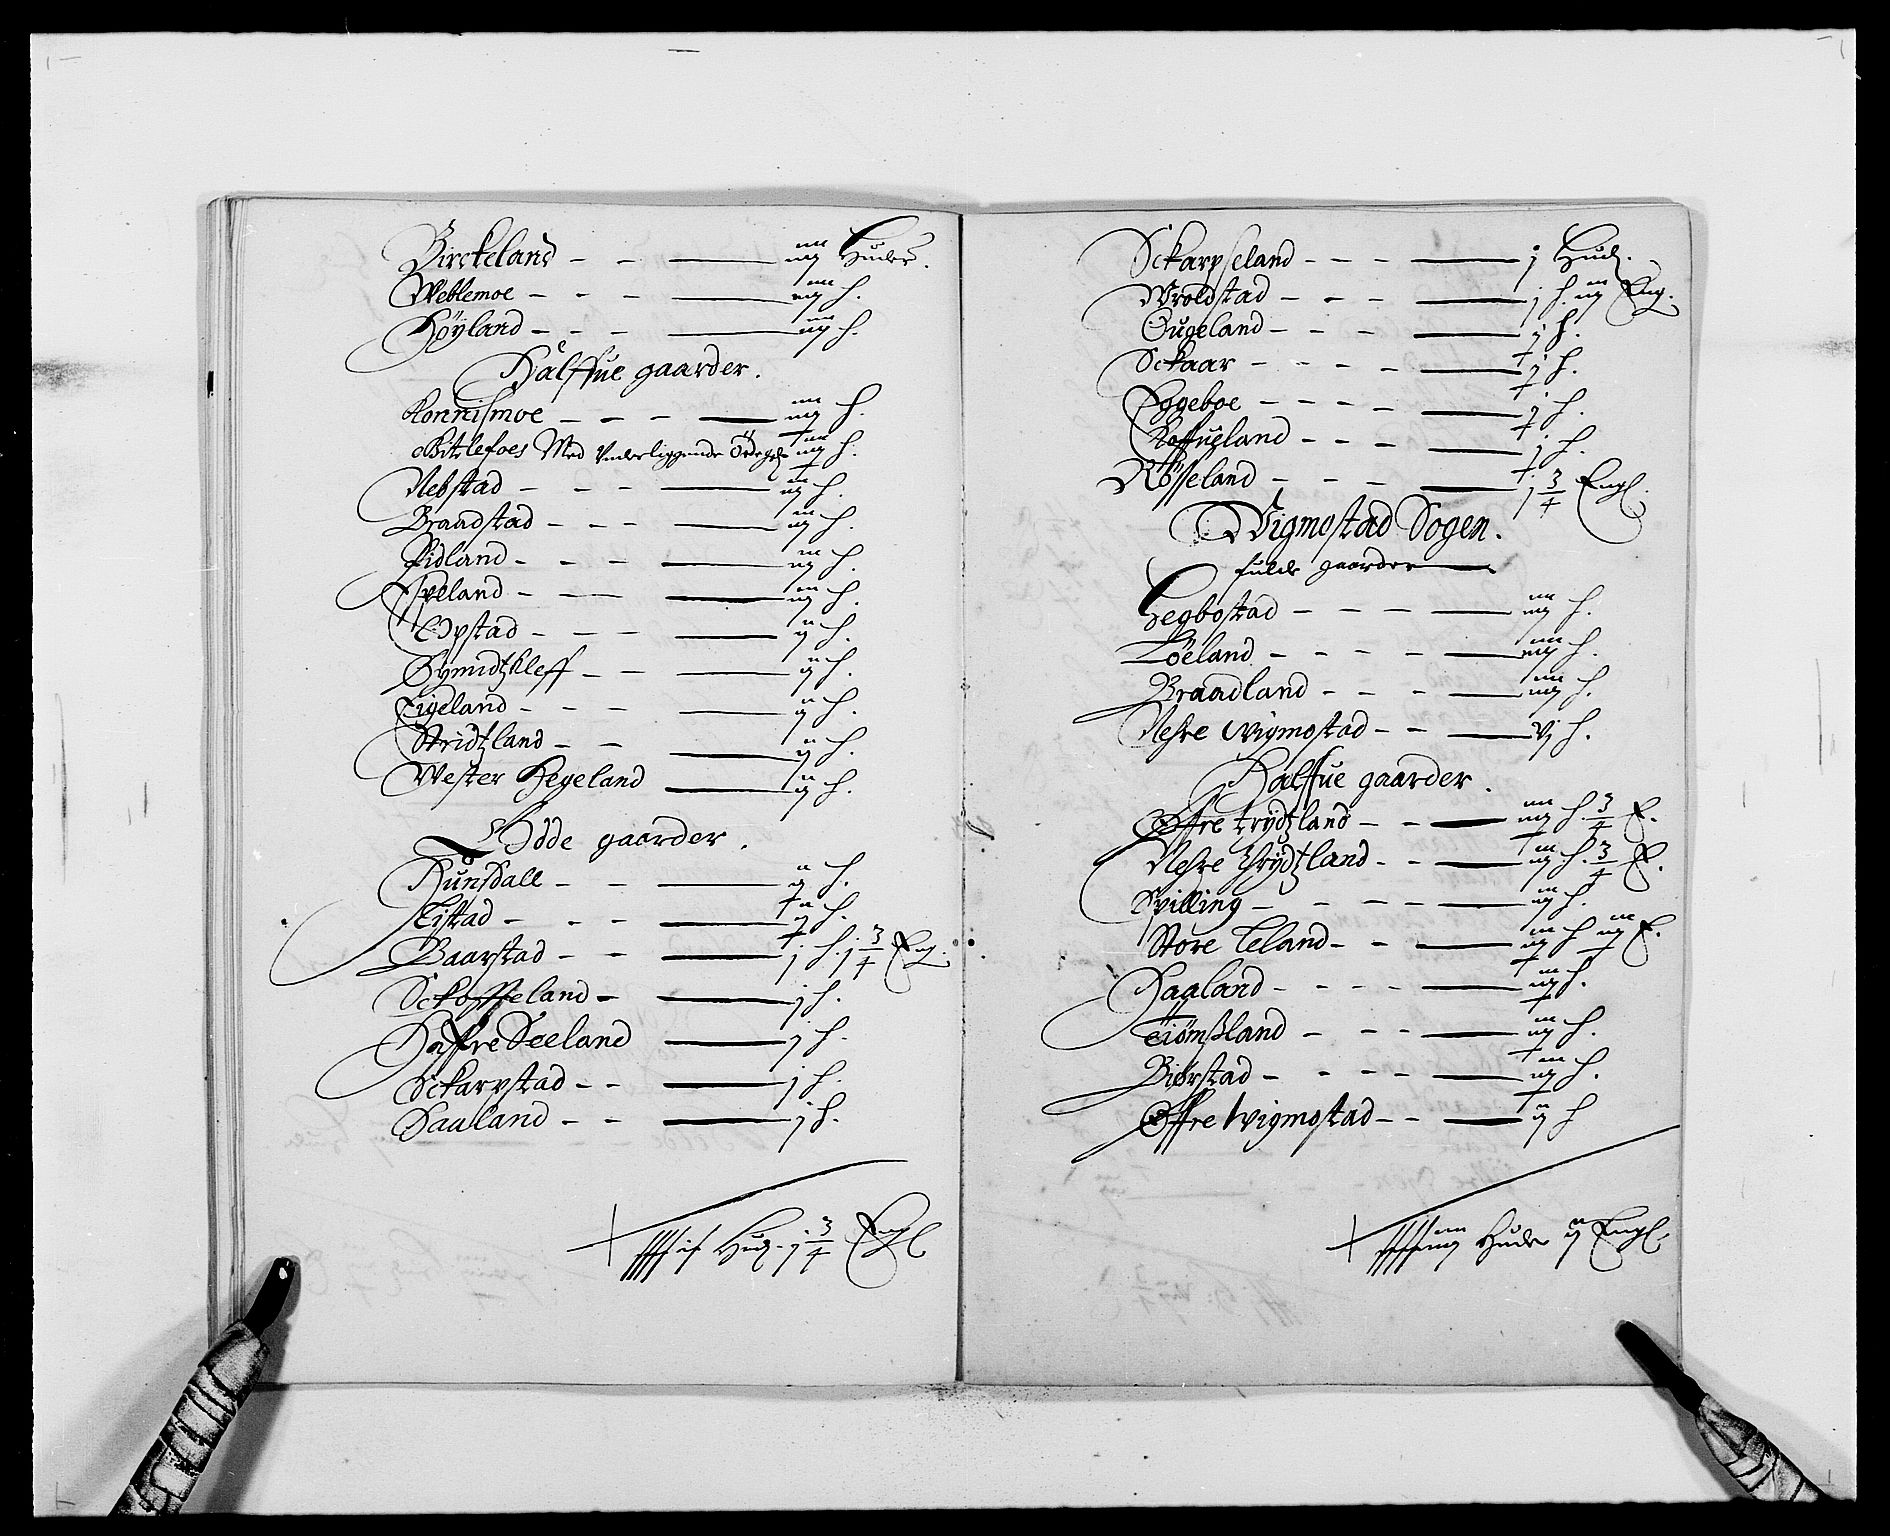 Birckeland - - — iiij Huder.
Weblemoe - - - — iiij h.
Höyland - - - — iij h.
Halffue gaarder.
Konnismoe - - - — iiij h.
Bitlefoes Med Vnderliggende Ödegd
Nebstad - - - — iij h.
Braadstad - - - — iij h.
Fidland - - - — iij h.
Ipeland - - - — iij h.
Opstad - - - — ij h.
Gymidtzkleff - - — ij h.
Eigeland - - - — ij h.
Stridtzland - - — ij h.
Wester Hegeland — ij h.
Ödde gaarder.
Hunsdall - - — ij h.
Tistad - - - — ij h.
Baarstad - - — j h. j 3/4 Eng.
Sckoffteland - — j h.
Haffre Seeland — j h.
Sckarpstad - - — j h.
Haaland - - — j h.
Hud. j 3/4 Engl
Sckarpseland - - - — j Hud.
Wroldstad - - - — j h. iij Eng.
Öugeland - - - — j h.
Sckaar - - - - — j h.
Eggeboe - - - - — j h.
Roffueland - - - — j h.
Rösseland - - - — j 3/4 Engl.
Wigmostad Sogen.
fulde gaarder
Hegbostad - - - — iiij h.
Löeland - - - - — iiij h.
Braadland - - - — iiij h.
Nehre Wigmostad - - — vj h.
Halffue gaarder.
Öffre trydtzland - - — iiij h 3/4 E.
Nehre thrydtzland - - — iij h. 3/4 E.
Spilling - - - - — iij h.
Store Teland - - — iij h iij E.
Haaland - - - - — iij h.
Tiömßland - - - — iij h.
Biörstad - - - - — iij h.
Öffre Wigmostad - - — ij h
Huder ij Engl.